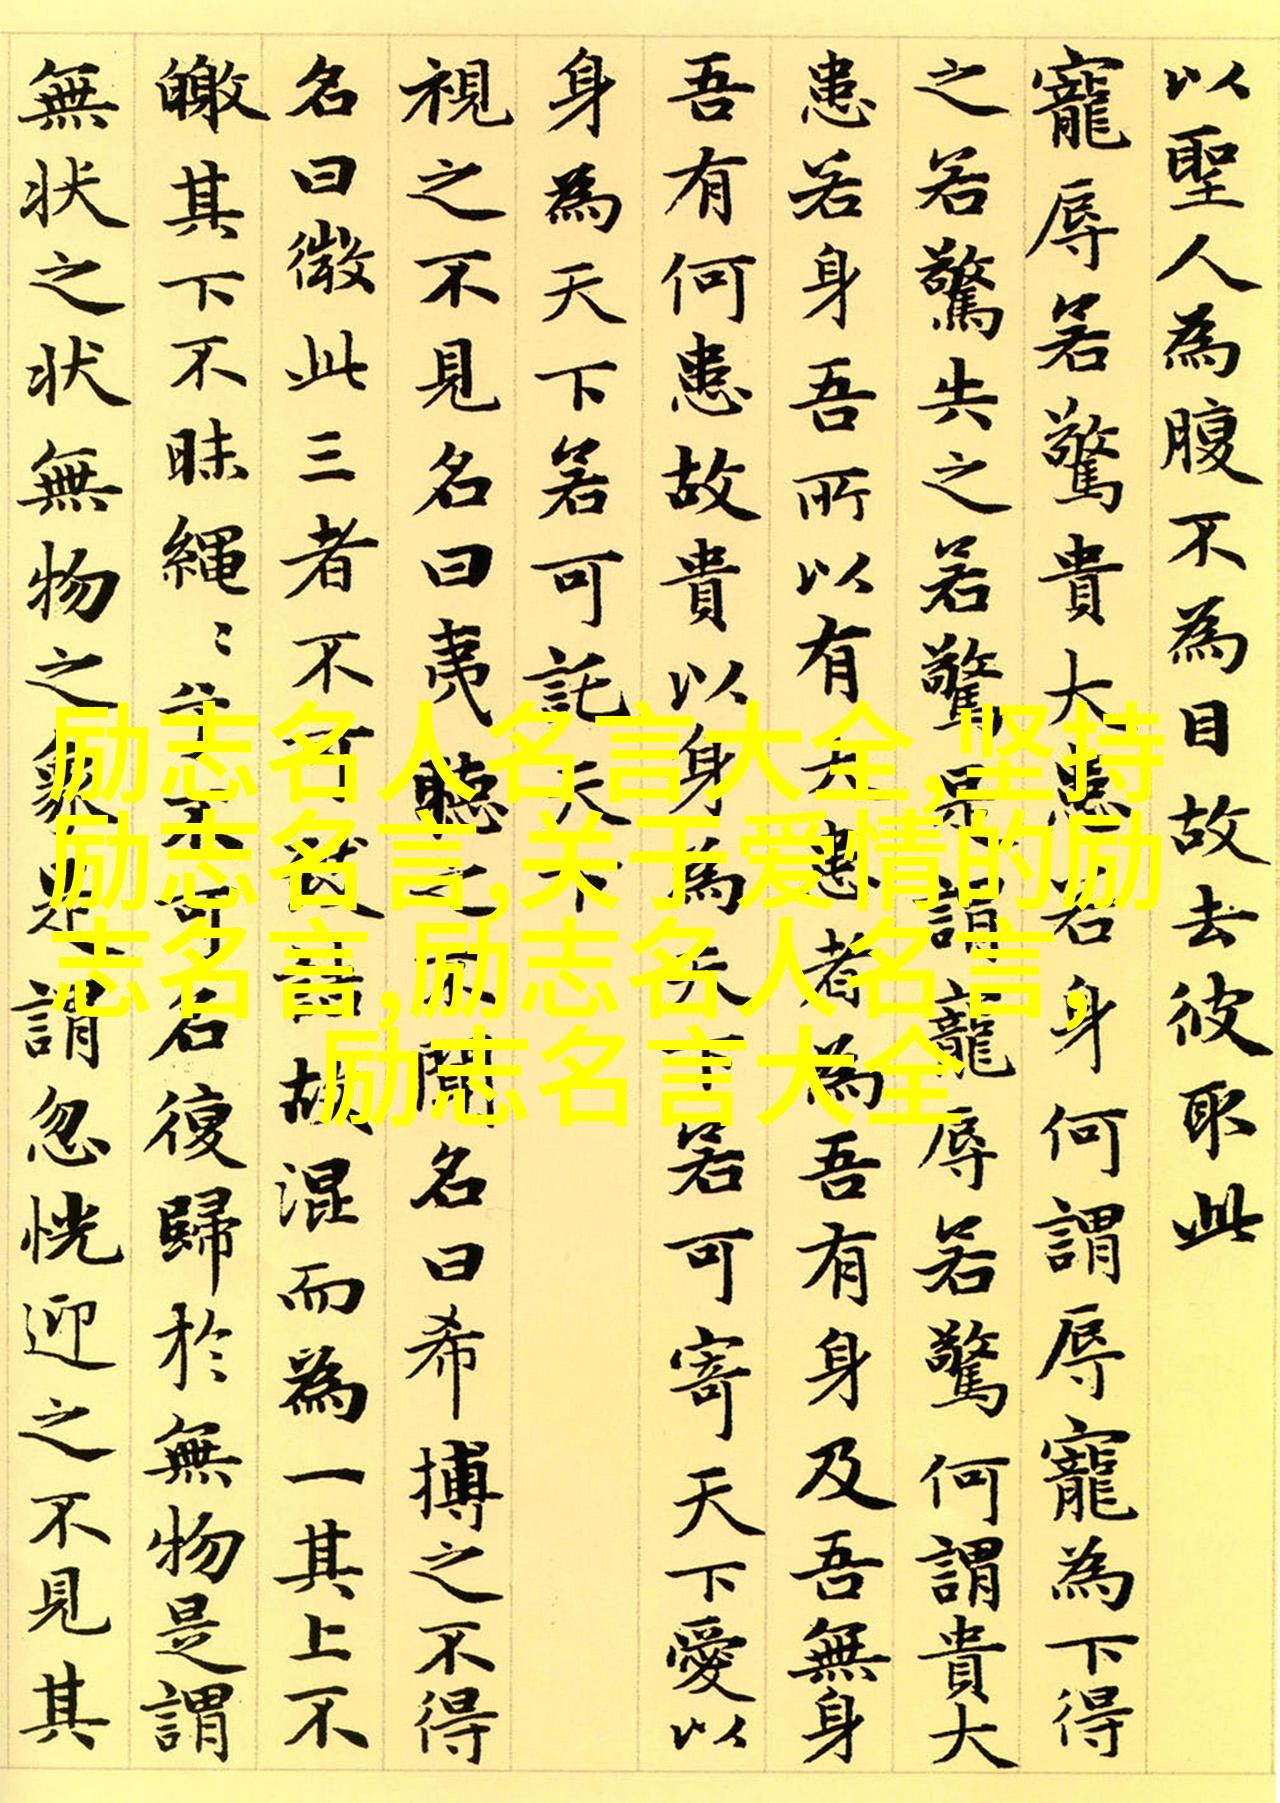 以聖人為腹不為目故去彼取此
寵辱若驚貴大患若身何謂辱寵為下得
之若驚失之若驚是謂寵辱若驚何謂貴大
患若身吾所以有大患者為吾有身及吾無身
吾有何患故貴以身為天下若可寄天下愛以
身為天下若可託天下
視之不見名曰夷聽之不聞名曰希搏之不得
名曰微此三者不可致詰故混而為一其上不
皦其下不昧繩〻兮不可名復歸於無物是謂
無状之状無物之象是謂忽恍迎之不見其
励志名人名言大全,坚持
励志名言,关于爱情的励
志名言,励志名人名言,
励志名言大全